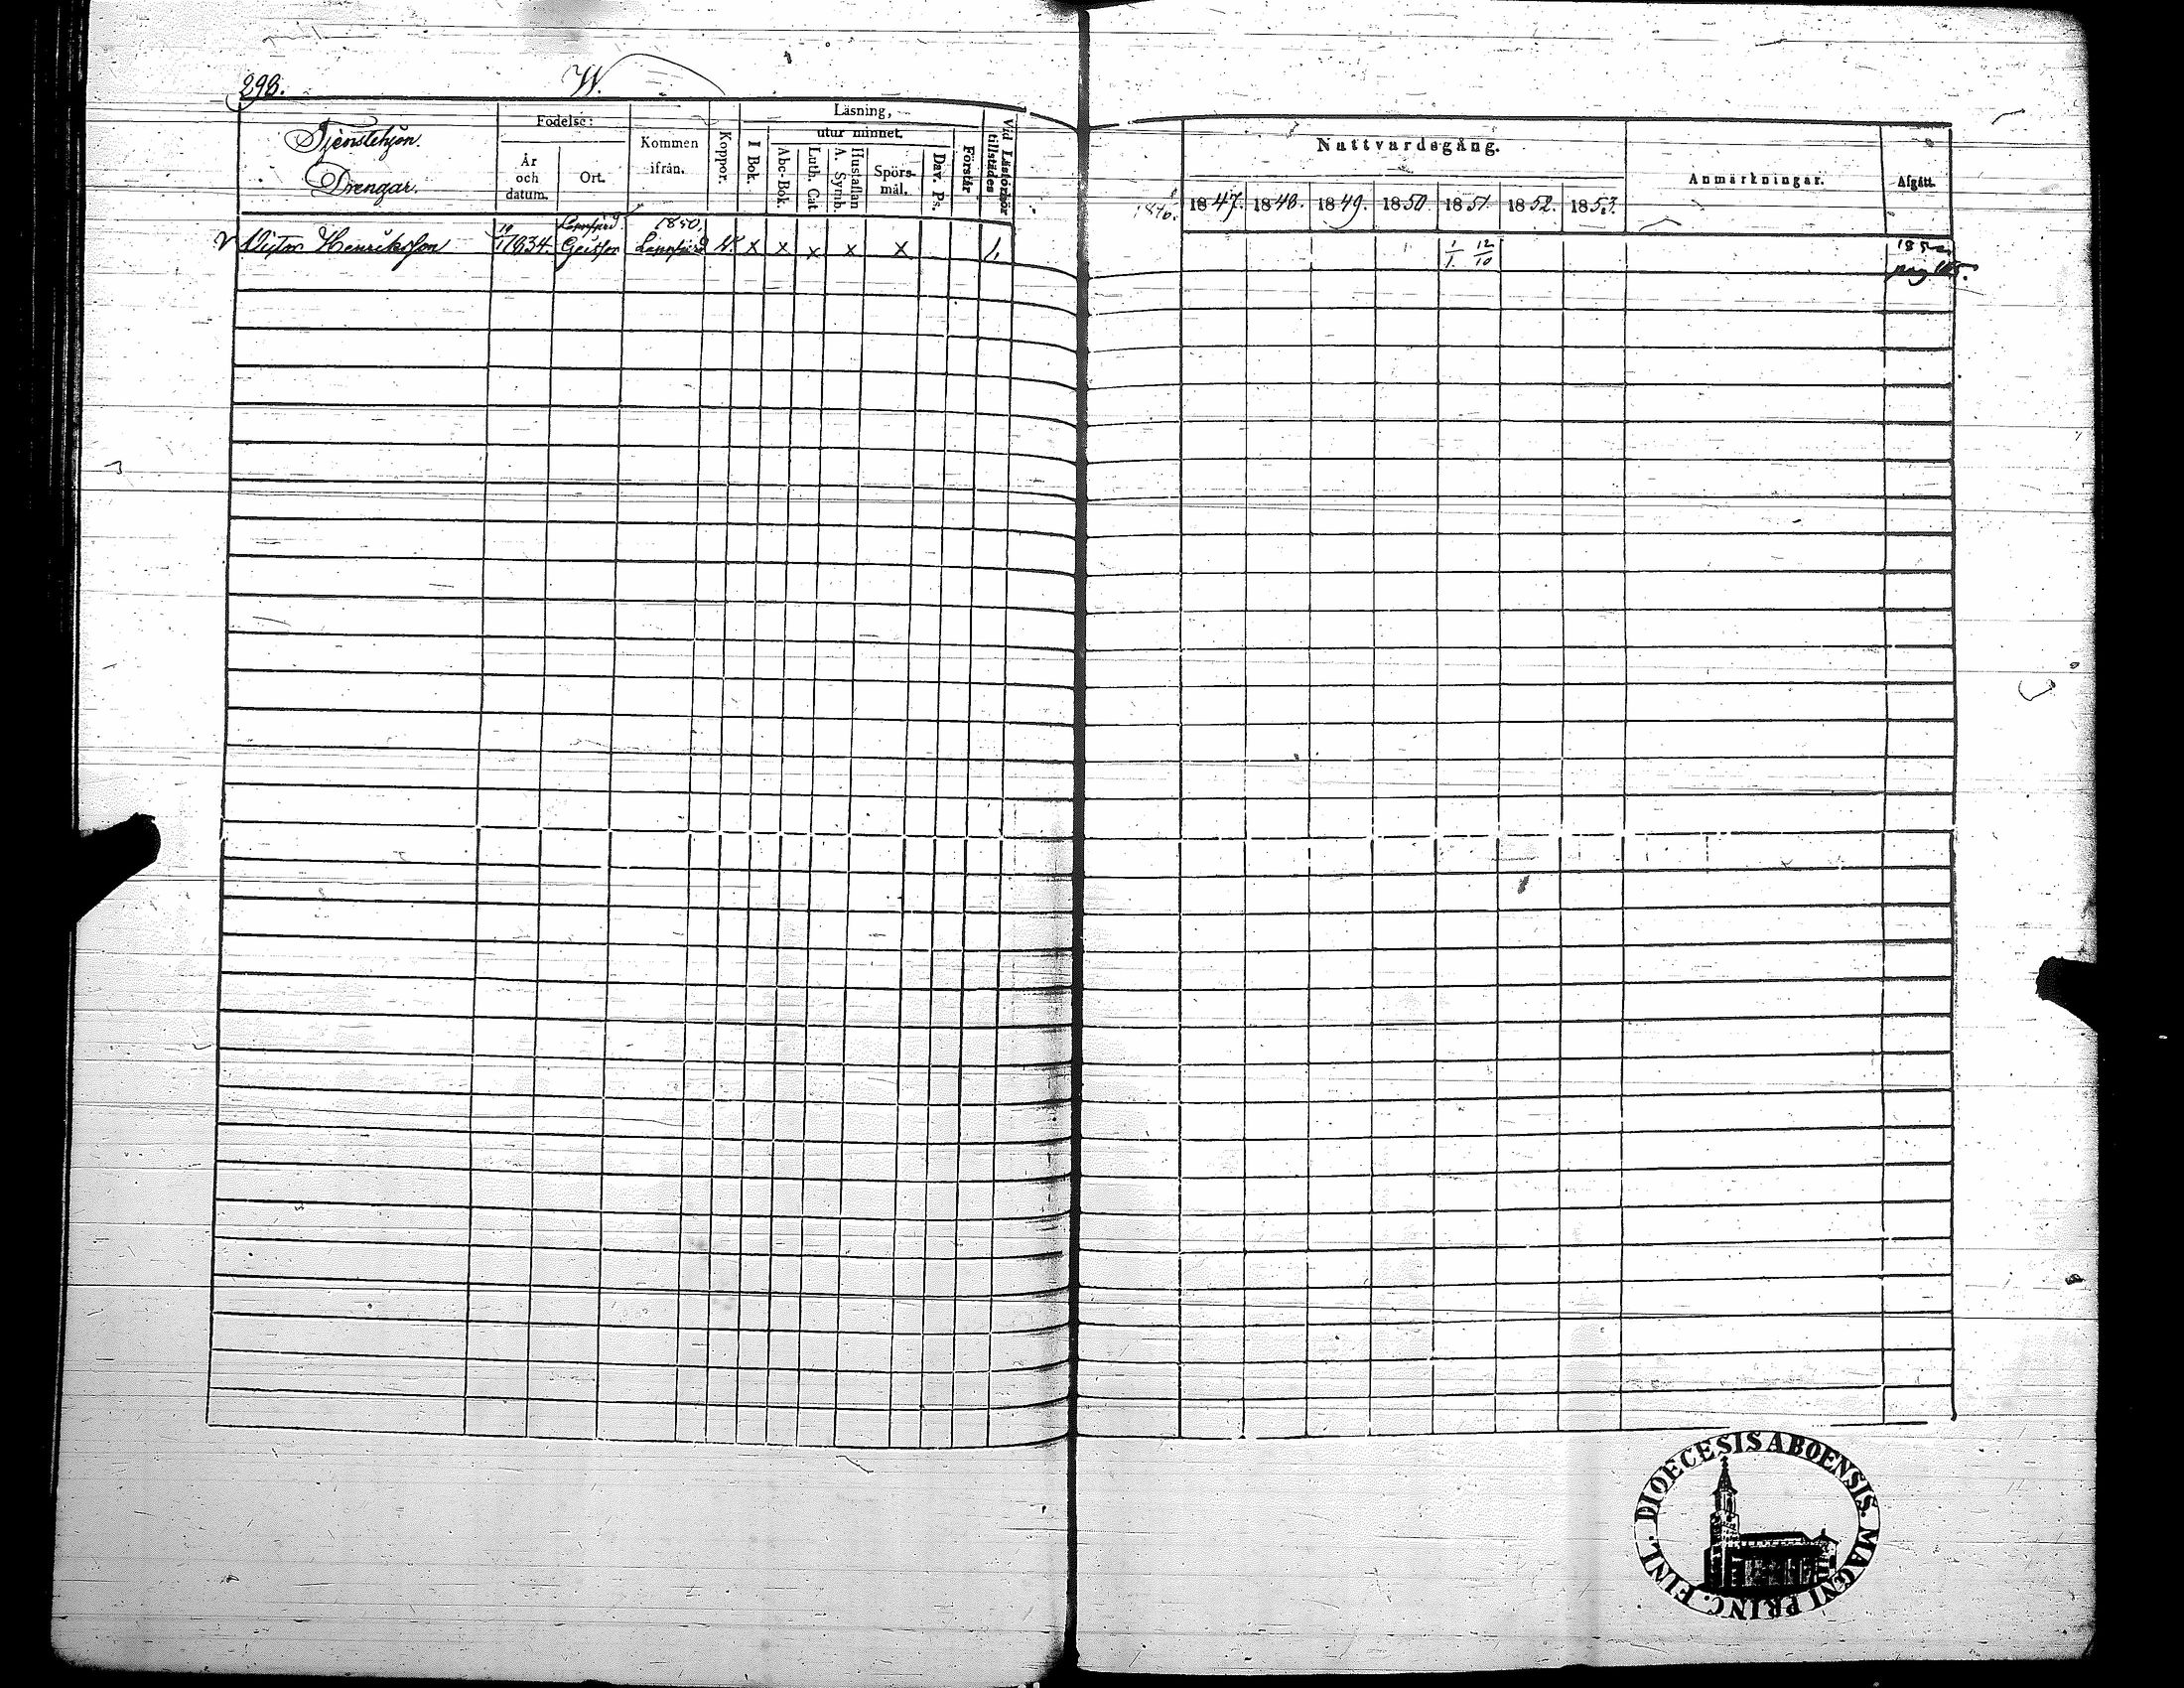 298. W.
Tjenstehjon.
Drengar.
Födelse:
År och datum.
Ort.
Kommen ifrån.
Koppor.
Läsning,
I Bok.
utur minnet.
Abc-Bok.
Luth. Cat
Hustaflan A. Symb.
Spörs-mål.
Dav. Ps.
Förstår
Vid Läsförhör tillstädes
1846.
Nattvardsgång.
1847. 1848. 1849. 1850. 1851. 1852. 1853.
Anmärkningar.
Afgått.
Victor Henriksson 19/1 1834. Lappfjärd Geitson 1850, Lappfjärd N. x x x x x 1. 1/1. 12/10 185 pag
DIOECESIS ABOENSIS. MAGNI PRINC. FINL.